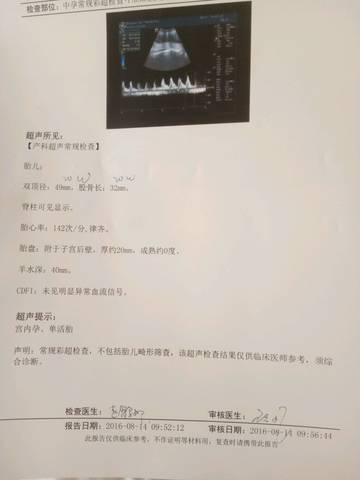 检查部位：中孕常规彩超检查
超声所见：
【产科超声常规检查】
胎儿：
20W 20W
双顶径：49mm，股骨长：32mm。
脊柱可见显示。
胎心率：142次/分，律齐。
胎盘：附于子宫后壁，厚约20mm，成熟约0度。
羊水深：40mm。
CDFI：未见明显异常血流信号。
超声提示：
宫内孕、单活胎
声明：常规彩超检查，不包括胎儿畸形筛查，该超声检查结果仅供临床医师参考，须综
合诊断。
检查医生：
审核医生：
报告日期：2016-08-14 09:52:12
审核日期：2016-08-14 09:56:44
此报告仅供临床参考，不作证明等材料用，复查时请携带此报告